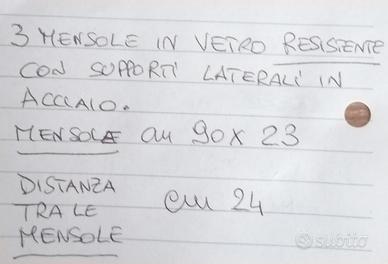 3 MENSOLE IN VETRO RESISTENTE
CON SUPPORTI LATERALI IN
ACCIAIO.
MENSOLE cm 90x23
DISTANZA
TRA LE cm 24
MENSOLE
subito